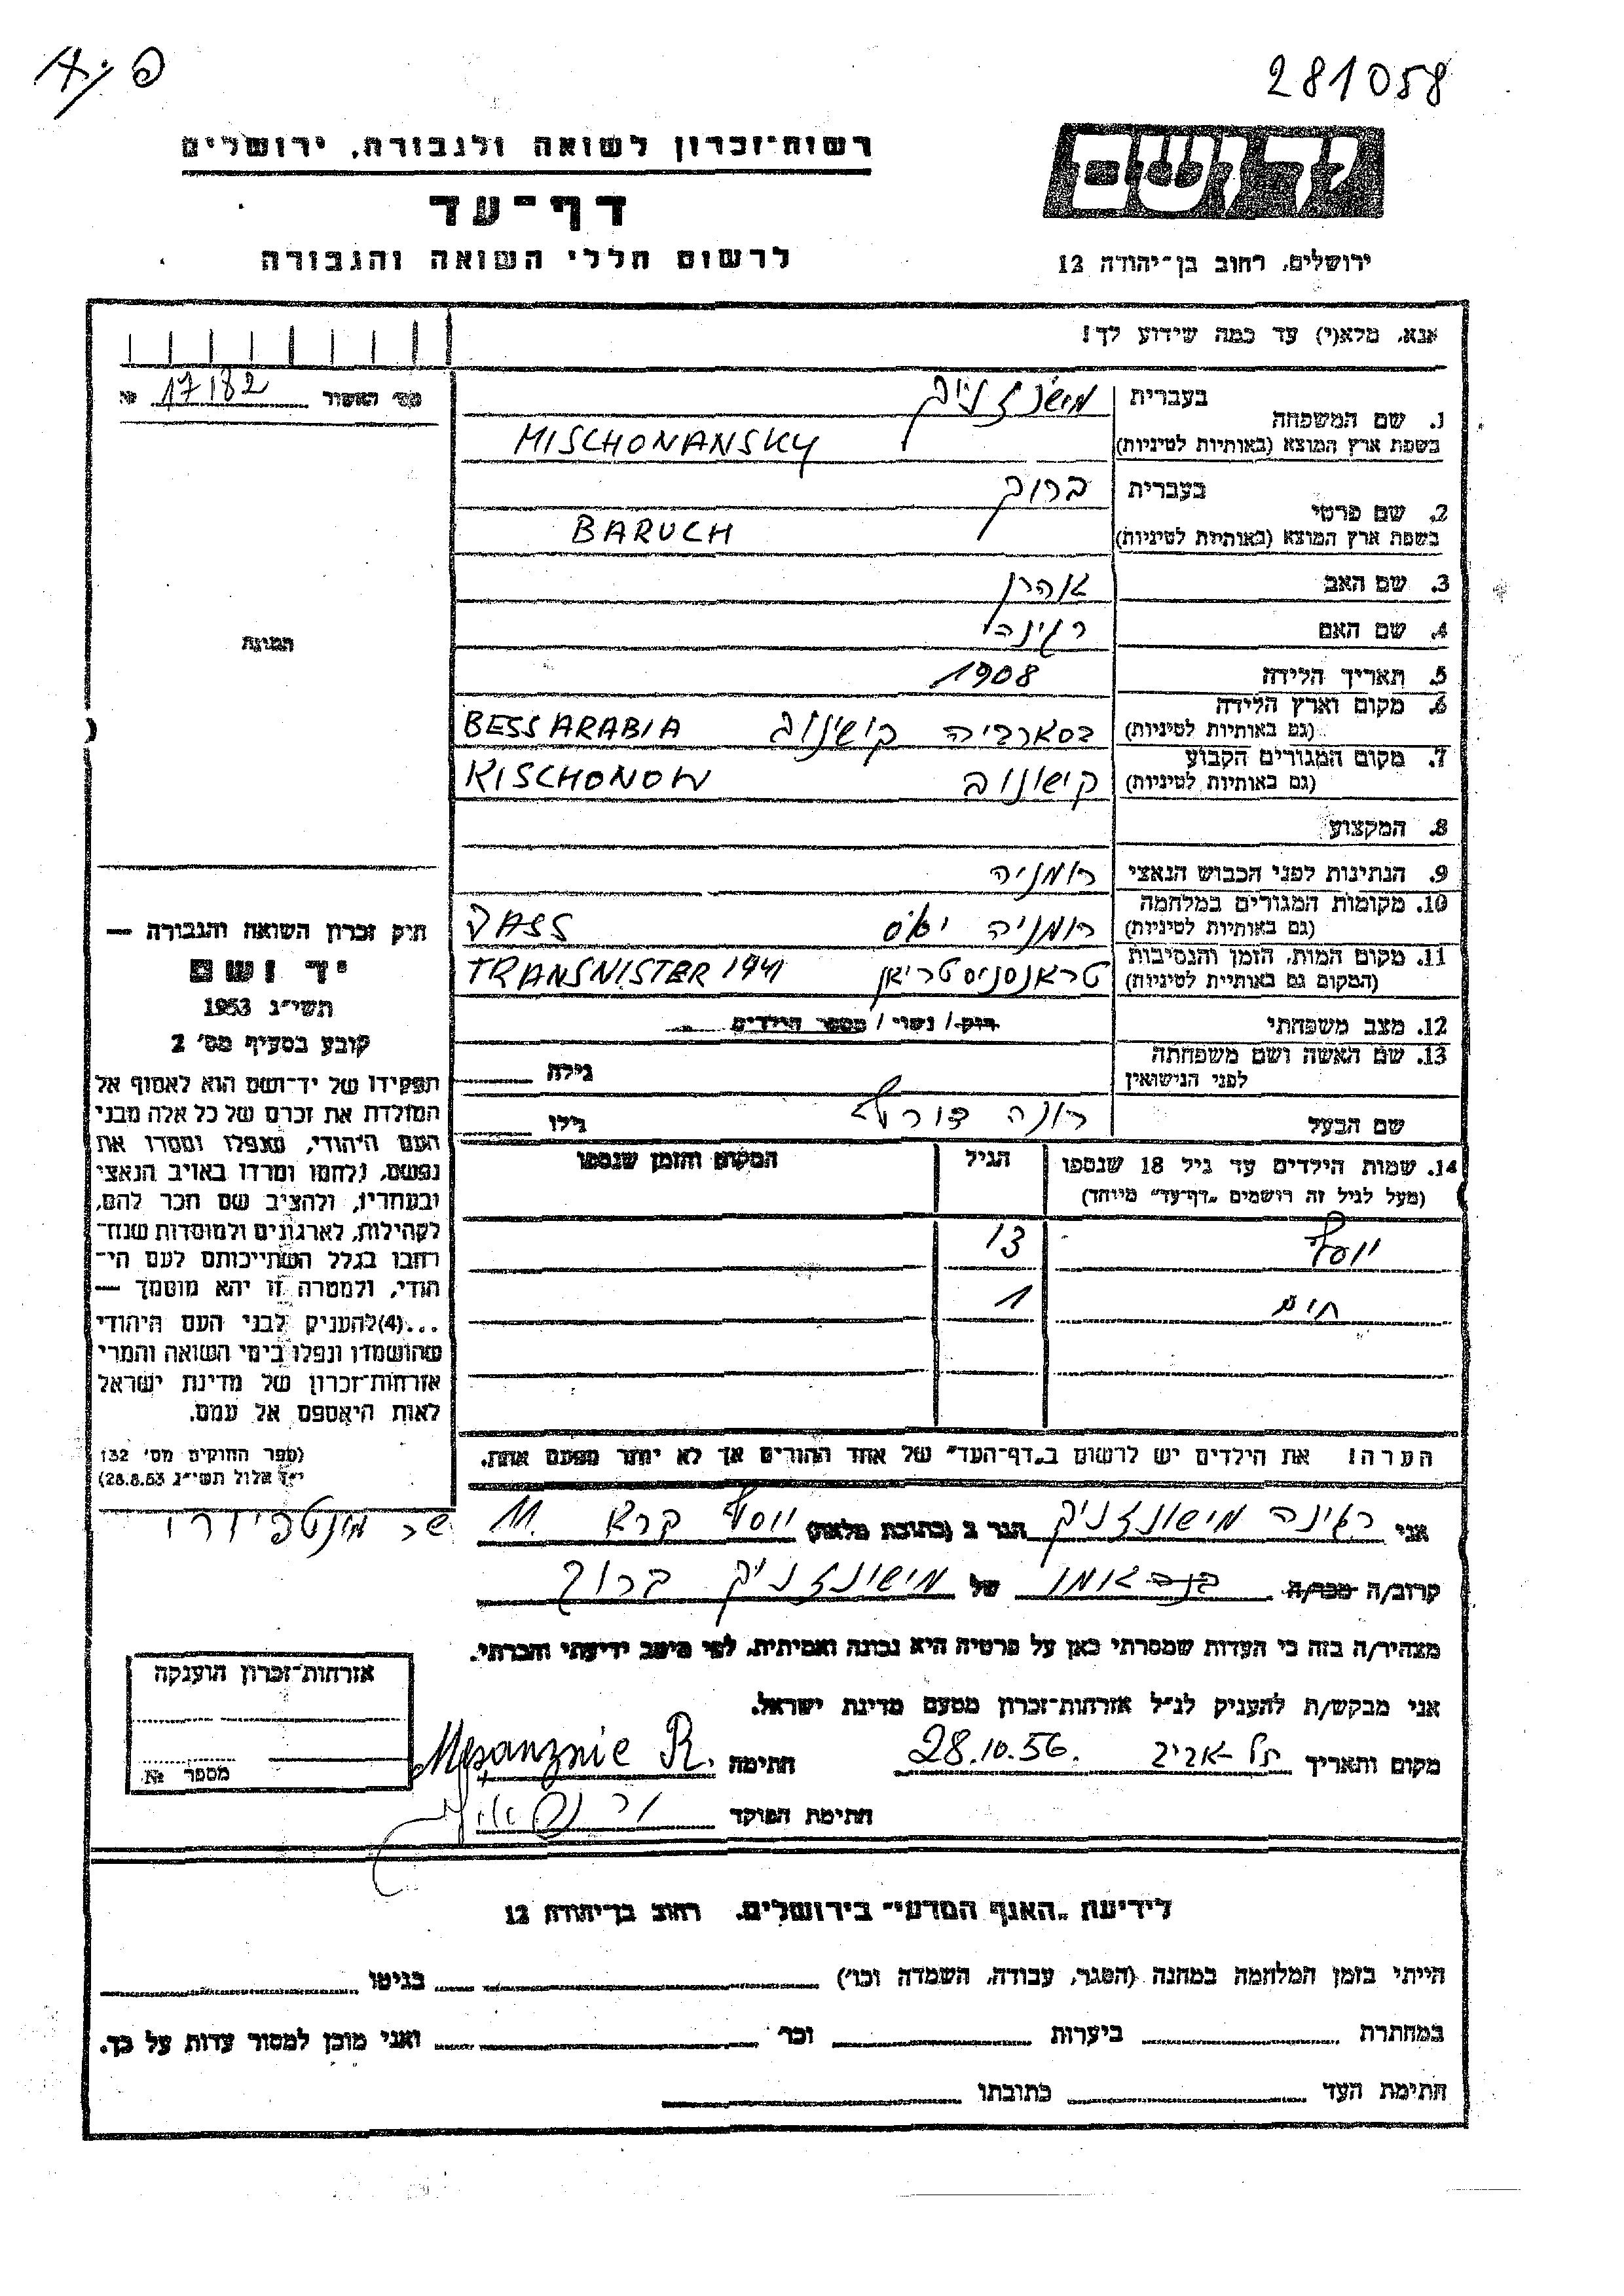 281058
רשות־זכרון לשואה ולגבורה, ירושלים
ידושם
דף־עד
לרשום חללי השואה והגבורה
ירושלים, רחוב בן־יהודה 12
אנא, מלא(י) עד כמה שידוע לך!
מס' האשור 17182 №
1. שם המשפחה
בעברית
בשפת ארץ המוצא (באותיות לטיניות) MISCHONANSKY
2. שם פרטי
בעברית ברוך
בשפת ארץ המוצא (באותיות לטיניות) BARUCH
3. שם האב אהרן
4. שם האם רגינה
5. תאריך הלידה 1908
6. מקום וארץ הלידה
(גם באותיות לטיניות) בסארביה קישינוב BESSARABIA
7. מקום המגורים הקבוע
(גם באותיות לטיניות) קישונוב KISCHONOW
8. המקצוע
9. הנתינות לפני הכבוש הנאצי רומניה
10. מקומות המגורים במלחמה
(גם באותיות לטיניות) רומניה יאס JASS
11. מקום המות, הזמן והנסיבות
(המקום גם באותיות לטיניות) טראנסניסטריאן TRANSNISTER 1941
12. מצב משפחתי רווק / נשוי / מספר הילדים
13. שם האשה ושם משפחתה
לפני הנישואין
גילה
שם הבעל רונה
גילו
14. שמות הילדים עד גיל 18 שנספו
(מעל לגיל זה רושמים „דף־עד" מיוחד)
הגיל
המקום והזמן שנספו
יוסף 13
חיים 1
הערה! את הילדים יש לרשום ב„דף־העד" של אחד ההורים אך לא יותר מפעם אחת.
התמונה
חוק זכרון השואה והגבורה —
יד ושם
תשי"ג 1953
קובע בסעיף מס' 2
תפקידו של יד־ושם הוא לאסוף אל
המולדת את זכרם של כל אלה מבני
העם היהודי, שנפלו ומסרו את
נפשם, נלחמו ומרדו באויב הנאצי
ובעוזריו, ולהציב שם וזכר להם,
לקהילות, לארגונים ולמוסדות שנח־
רבו בגלל השתייכותם לעם הי־
הודי, ולמטרה זו יהא מוסמך —
...(4)להעניק לבני העם היהודי
שהושמדו ונפלו בימי השואה והמרי
אזרחות־זכרון של מדינת ישראל
לאות היאספם אל עמם.
(ספר החוקים מס' 132
י"ז אלול תשי"ג 28.8.53)
אני רגינה מישונזניק הגר ב (כתובת מלאה) יוסף קרא 11
קרוב/ה מכר/ה של מישונזניק ברוך
מצהיר/ה בזה כי העדות שמסרתי כאן על פרטיה היא נכונה ואמיתית, לפי מיטב ידיעתי והכרתי.
אני מבקש/ת להעניק לנ"ל אזרחות־זכרון מטעם מדינת ישראל.
מקום ותאריך תל-אביב 28.10.56. חתימה
חתימת הפוקד
אזרחות־זכרון הוענקה
מספר №
לידיעת „האגף המדעי" בירושלים, רחוב בן־יהודה 12
הייתי בזמן המלחמה במחנה (הסגר, עבודה, השמדה וכו') בגיטו
במחתרת ביערות וכו' ואני מוכן למסור עדות על כך.
חתימת העד כתובתו